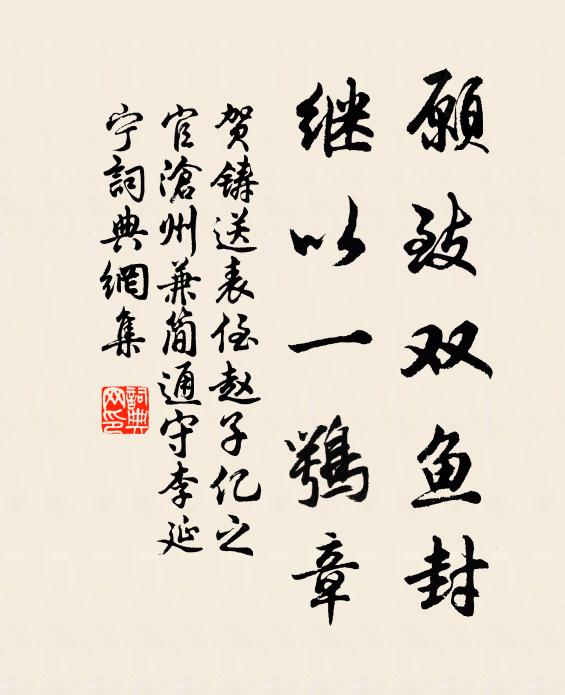 願致双鱼封
继以一鶚章
贺鑄送表侄赵子亿之
官滄州兼简通守李延
宁詞典網集
詞典网印